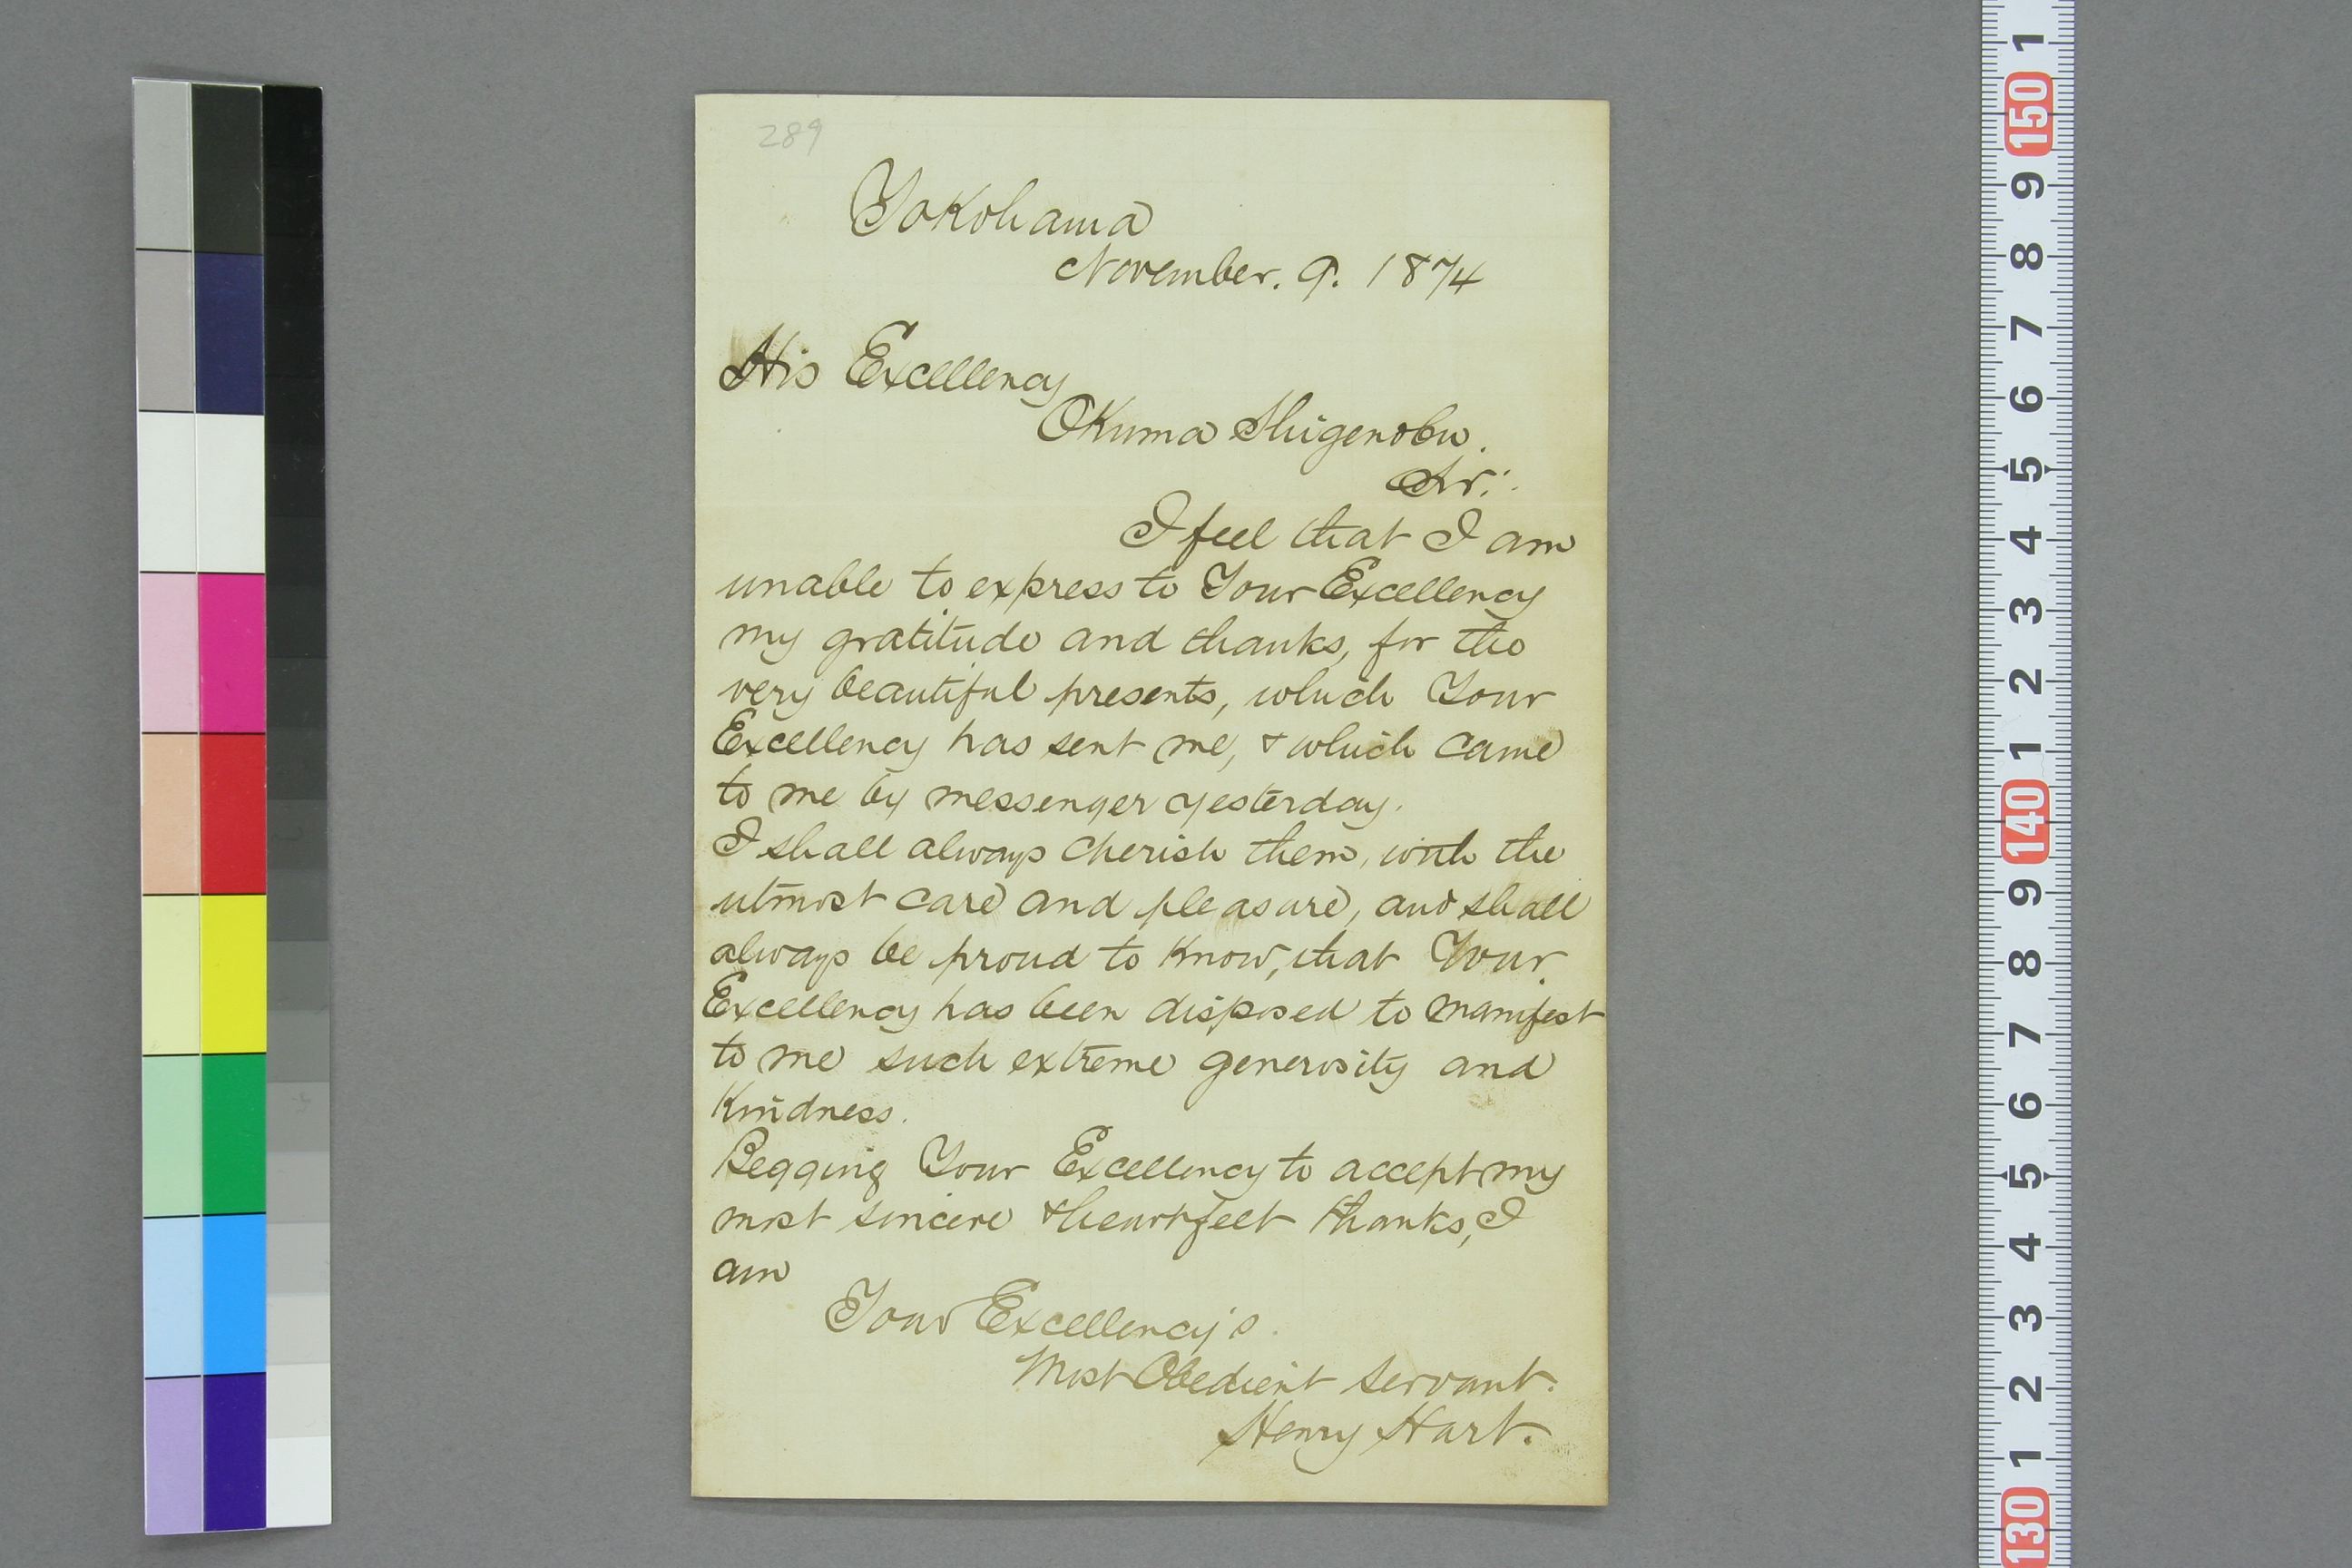 289
Yokohama
November. 9. 1874
His Excellency
Okuma Shigenobu.
Sir:
I feel that I am
unable to express to Your Excellency
my gratitude and thanks, for the
very beautiful presents, which Your
Excellency has sent me, & which came
to me by messenger yesterday.
I shall always cherish them, with the
utmost care and pleasure, and shall
always be proud to know, that Your
Excellency has been disposed to manifest
to me such extreme generosity and
Kindness.
Begging Your Excellency to accept my
most sincere & heartfelt thanks, I
am
Your Excellency's.
Most Obedient Servant.
Henry Hart.
1
150
9
8
7
6
5
4
3
2
1
140
9
8
7
6
5
4
3
2
1
130